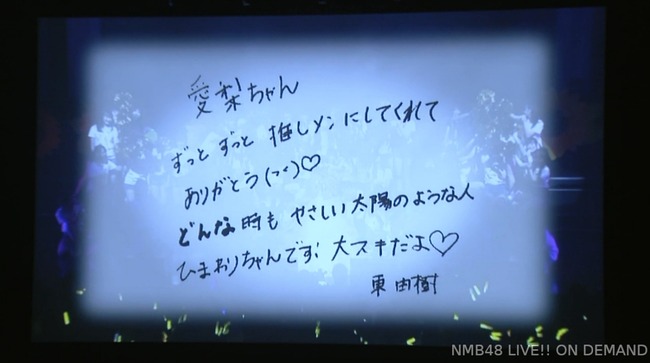 愛梨ちゃん
ずっと ずっと 推しメンにしてくれて
ありがとう(つ<)♡
どんな時も やさしい太陽のような人
ひまわりちゃんです! 大スキだよ♡
東由樹
NMB48 LIVE!! ON DEMAND